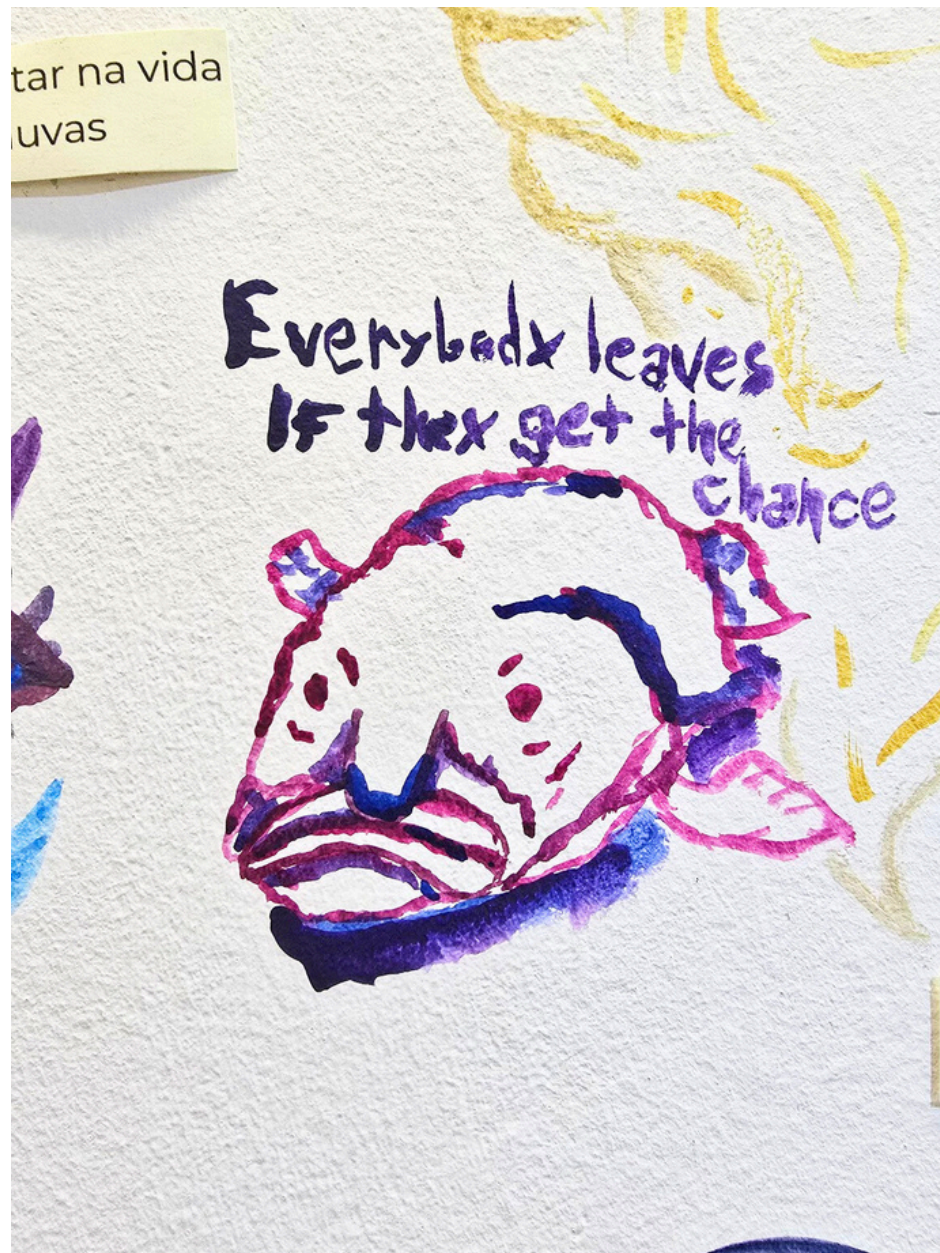 tar na vida
luvas
Everybody leaves
If they get the
chance